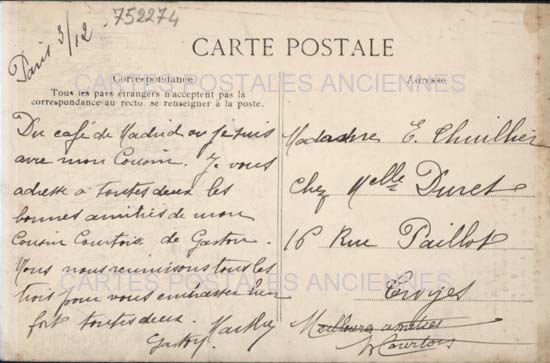 752274
Paris 3/12
CARTE POSTALE
Correspondance
Tous les pays étrangers n'acceptent pas la
correspondance au recto. se renseigner à la poste.
Adresse
CARTES POSTALES ANCIENNES
Du café de Madrid ou je suis
avec mon Cousin. Je vous
adresse à toutes deux les
bonnes amitiés de mon
Cousin Courtois de Gaston.
Nous nous reunissons tous les
trois pour vous embrasser bien
fort toutes deux.
Gaston
Madame E. Thuillier
Chez Melle Duret
16 Rue Paillot
Troyes
CARTES POSTALES ANCIENNES
Meilleures amitiés
Courtois